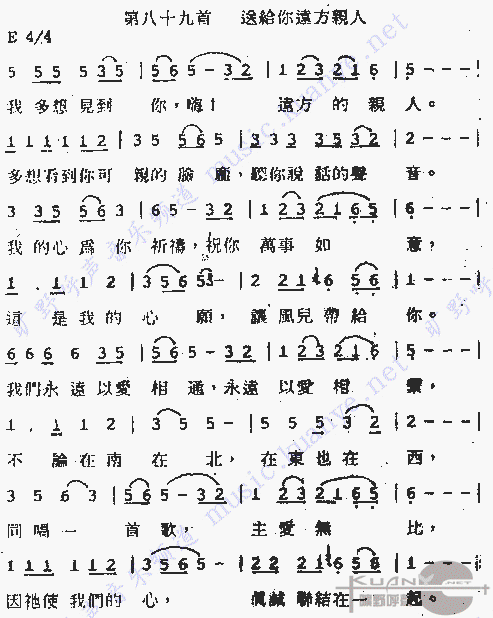 第八十九首 送給你遠方親人
E 4/4
5 55 5 35 | 565 - 32 | 1 23216 | 5 - - - |
我多想見到 你，嗨！ 遠方 的 親 人。
11 11 12 | 35 565 | 5 5 35 35 | 2 - - - |
多想看到你可 親的 臉 龐，聽你說 話的聲 音。
3 35 56 3 | 65 - 32 | 12 23 2165 | 6 - - - |
我 的心 爲 你 祈禱，祝你 萬事 如 意，
1 . 1 1 2 | 3565 53 | 2 221 656 | 5 - - - |
這 是我的 心 願， 讓風兒帶給 你。
66 6 6 35 | 565 - 32 | 1 23 216 | 2 - - - |
我們永遠以愛 相 通，永遠 以愛 相 繫，
1 . 1 1 2 | 35 - - | 55 55 32 | 2 - - - |
不 論在南 在 北， 在東也在 西，
3 35 6 3 | 565 - 32 | 1 23 2165 | 6 - - - |
同唱一 首歌， 主愛無 比，
1 11 112 | 3565 - | 22 21 656 | 5 - - - |
因祂使 我們的 心， 眞誠 聯結在一 起。
曠野呼声音乐频道 music.kuanye.net
KUANYE.NET
曠野呼聲